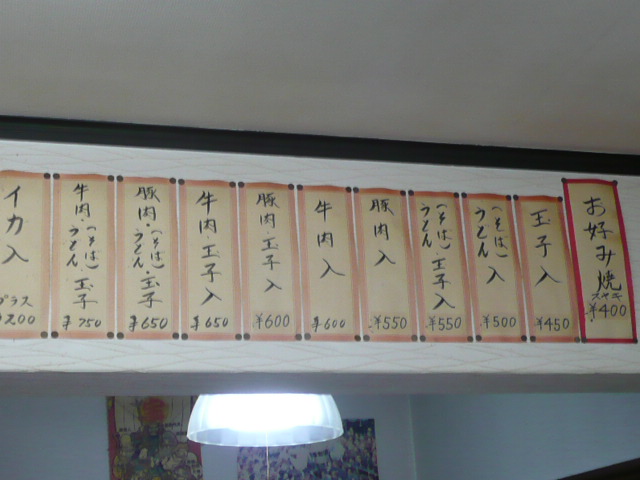 お好み焼
スヤキ
¥400
玉子入
¥450
(そば)
うどん入
¥500
(そば)
うどん・玉子入
¥550
豚肉入
¥550
牛肉入
¥600
豚肉・玉子入
¥600
牛肉玉子入
¥650
豚肉・(そば)うどん・玉子
¥650
牛肉・(そば)うどん・玉子
¥750
イカ入
プラス
¥200